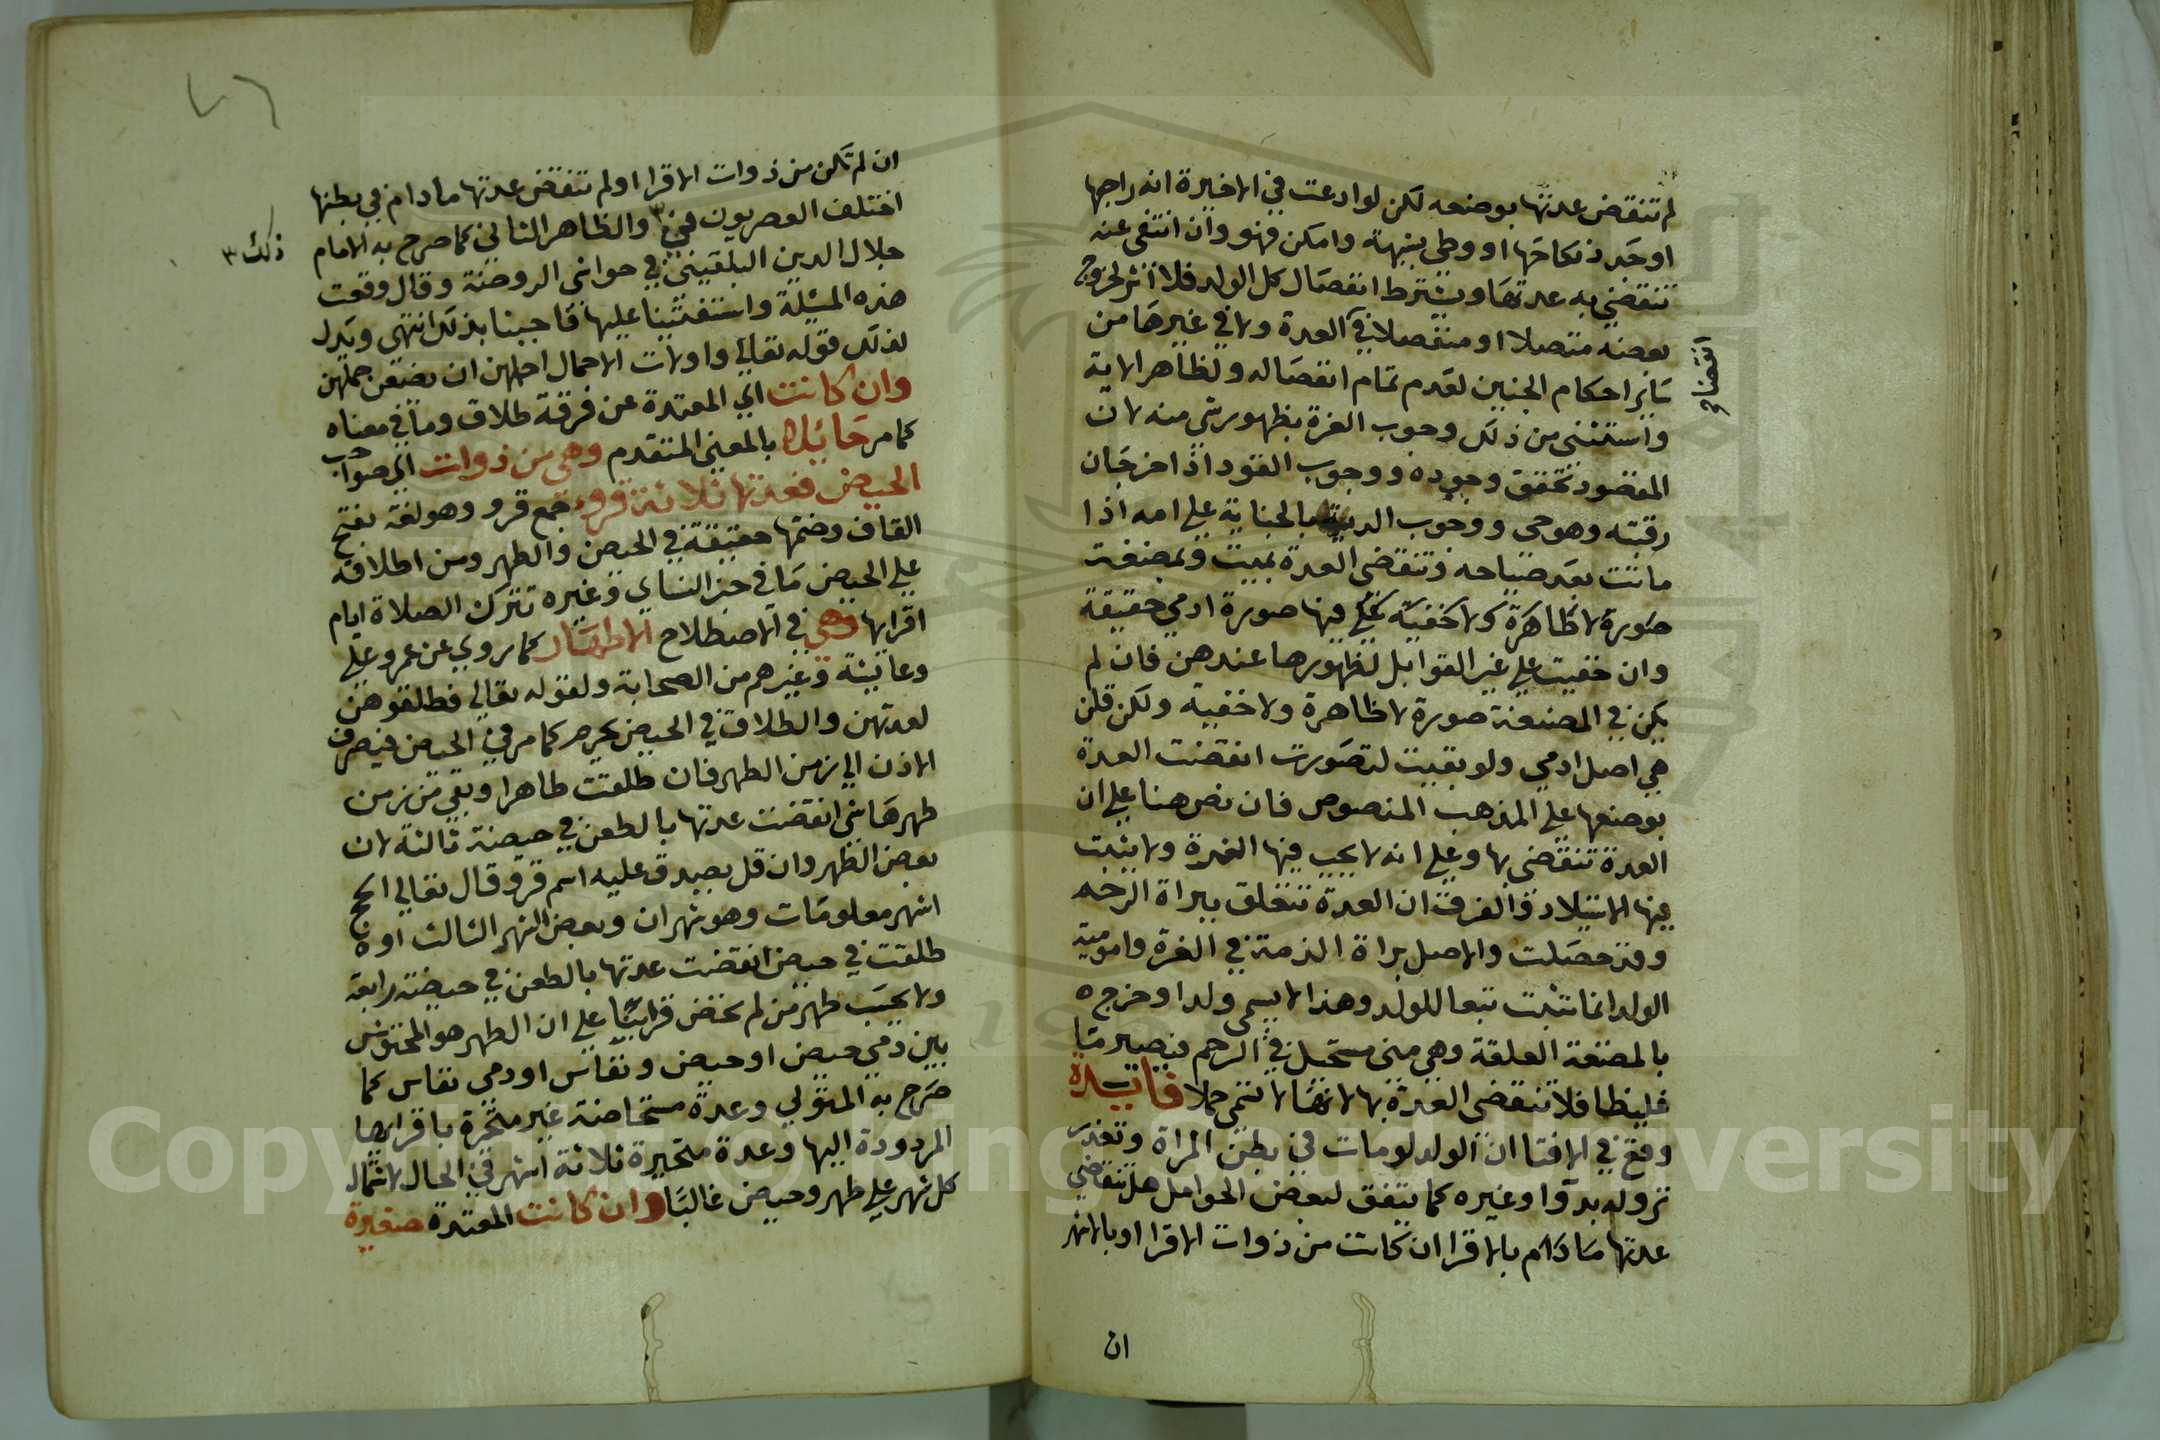 لم تنقض عدتها بوضعه لكن لو ادعت في الاخيرة انه راجعها
او جدد نكاحها او وطي بشبهة وامكن فهو وان انتفى عنه
تنقضي به عدتها ويشترط انفصال كل الولد فلا اثر لخروج
بعضه متصلا او منفصلا في العدة ولا في غيرها من
انقضا
ساير احكام الجنين لعدم تمام انفصاله ولظاهر الاية
واستثنى من ذلك وجوب الغرة بظهور شي منه لان
المقصود تحقق وجوده ووجوب القود اذا حز جان
رقبته وهو حى ووجوب الدية بالجناية على امه اذا
ماتت بعد صياحه وتنقضى العدة بميت وبمضغة
صورة لا ظاهرة ولا خفية فيها صورة ادمي حقيقة
وان خفيت على غير القوابل لظهورها عندهن فان لم
يكن في المضغة صورة لا ظاهرة ولا خفية ولكن قلن
هي اصل ادمي ولو بقيت لتصورت انقضت العدة
بوضعها على المذهب المنصوص فان نص هنا على ان
العدة تنقضي بها وعلى انه لا يجب فيها الغرة ولا يثبت
فيها الاستيلاد والفرق ان العدة تتعلق ببراة الرحم
وقد حصلت والاصل براة الذمة في الغرة وامومية
الولد انما تثبت تبعا للولد وهذا لا يسمى ولدا وخرج
بالمضغة العلقة وهي منى مستحيل في الرحم فيصير دما
غليظا فلا تنقضى العدة بها لانها لا تسمى حملا فايدة
وقع في الافتا ان الولد لو مات في بطن المراة وتعذر
نزوله بدوا وغيره كما يتفق لبعض الحوامل هل تنقضي
عدتها ما دام بالاقرا ان كانت من ذوات الاقرا او بالاشهر
ان
٧٦
ان لم تكن من ذوات الاقرا او لم تنقض عدتها ما دام في بطنها
اختلف العصريون في ٣ والظاهر الثاني كما صرح به الامام
ذلك ٣
جلال الدين البلقيني في حواشي الروضة وقال وقعت
هذه المسئلة واستفتينا عليها فاجبنا بذلك انتهى ويدل
لذلك قوله تعالى واولات الاحمال اجلهن ان يضعن حملهن
وان كانت اي المعتدة عن فرقة طلاق وما في معناه
كما مر حائلا بالمعنى المتقدم وهي من ذوات اي صواحب
الحيض فعدتها ثلاثة قروء جمع قرو وهو لغة بفتح
القاف وضمها حقيقة في الحيض والطهر ومن اطلاقه
على الحيض ما في خبر النساي وغيره تترك الصلاة ايام
اقرايها وهي في الاصطلاح الاطهار كما روي عن عمر وعلي
وعايشة وغيرهم من الصحابة ولقوله تعالى فطلقوهن
لعدتهن والطلاق في الحيض يحرم كما مر في الحيض فيصرف
الاذن الى زمن الطهر فان طلقت طاهرا وبقي من زمن
طهرها شي انقضت عدتها بالطعن في حيضة ثالثة لان
بعض الطهر وان قل يصدق عليه اسم قرو قال تعالى الحج
اشهر معلومات وهو شهران وبعض الشهر الثالث او
طلقت في حيض انقضت عدتها بالطعن في حيضة رابعة
ولا يحسب طهر من لم تحض قرا بنا على ان الطهر هو المحتوش
بين دمي حيض او حيض ونفاس او دمي نفاس كما
صرح به المتولي وعدة مستحاضة غير متحيرة باقرايها
المردودة اليها وعدة متحيرة ثلاثة اشهر في الحال لاشتمال
كل شهر على طهر وحيض غالبا وان كانت المعتدة صغيرة
Copyright © King Saud University